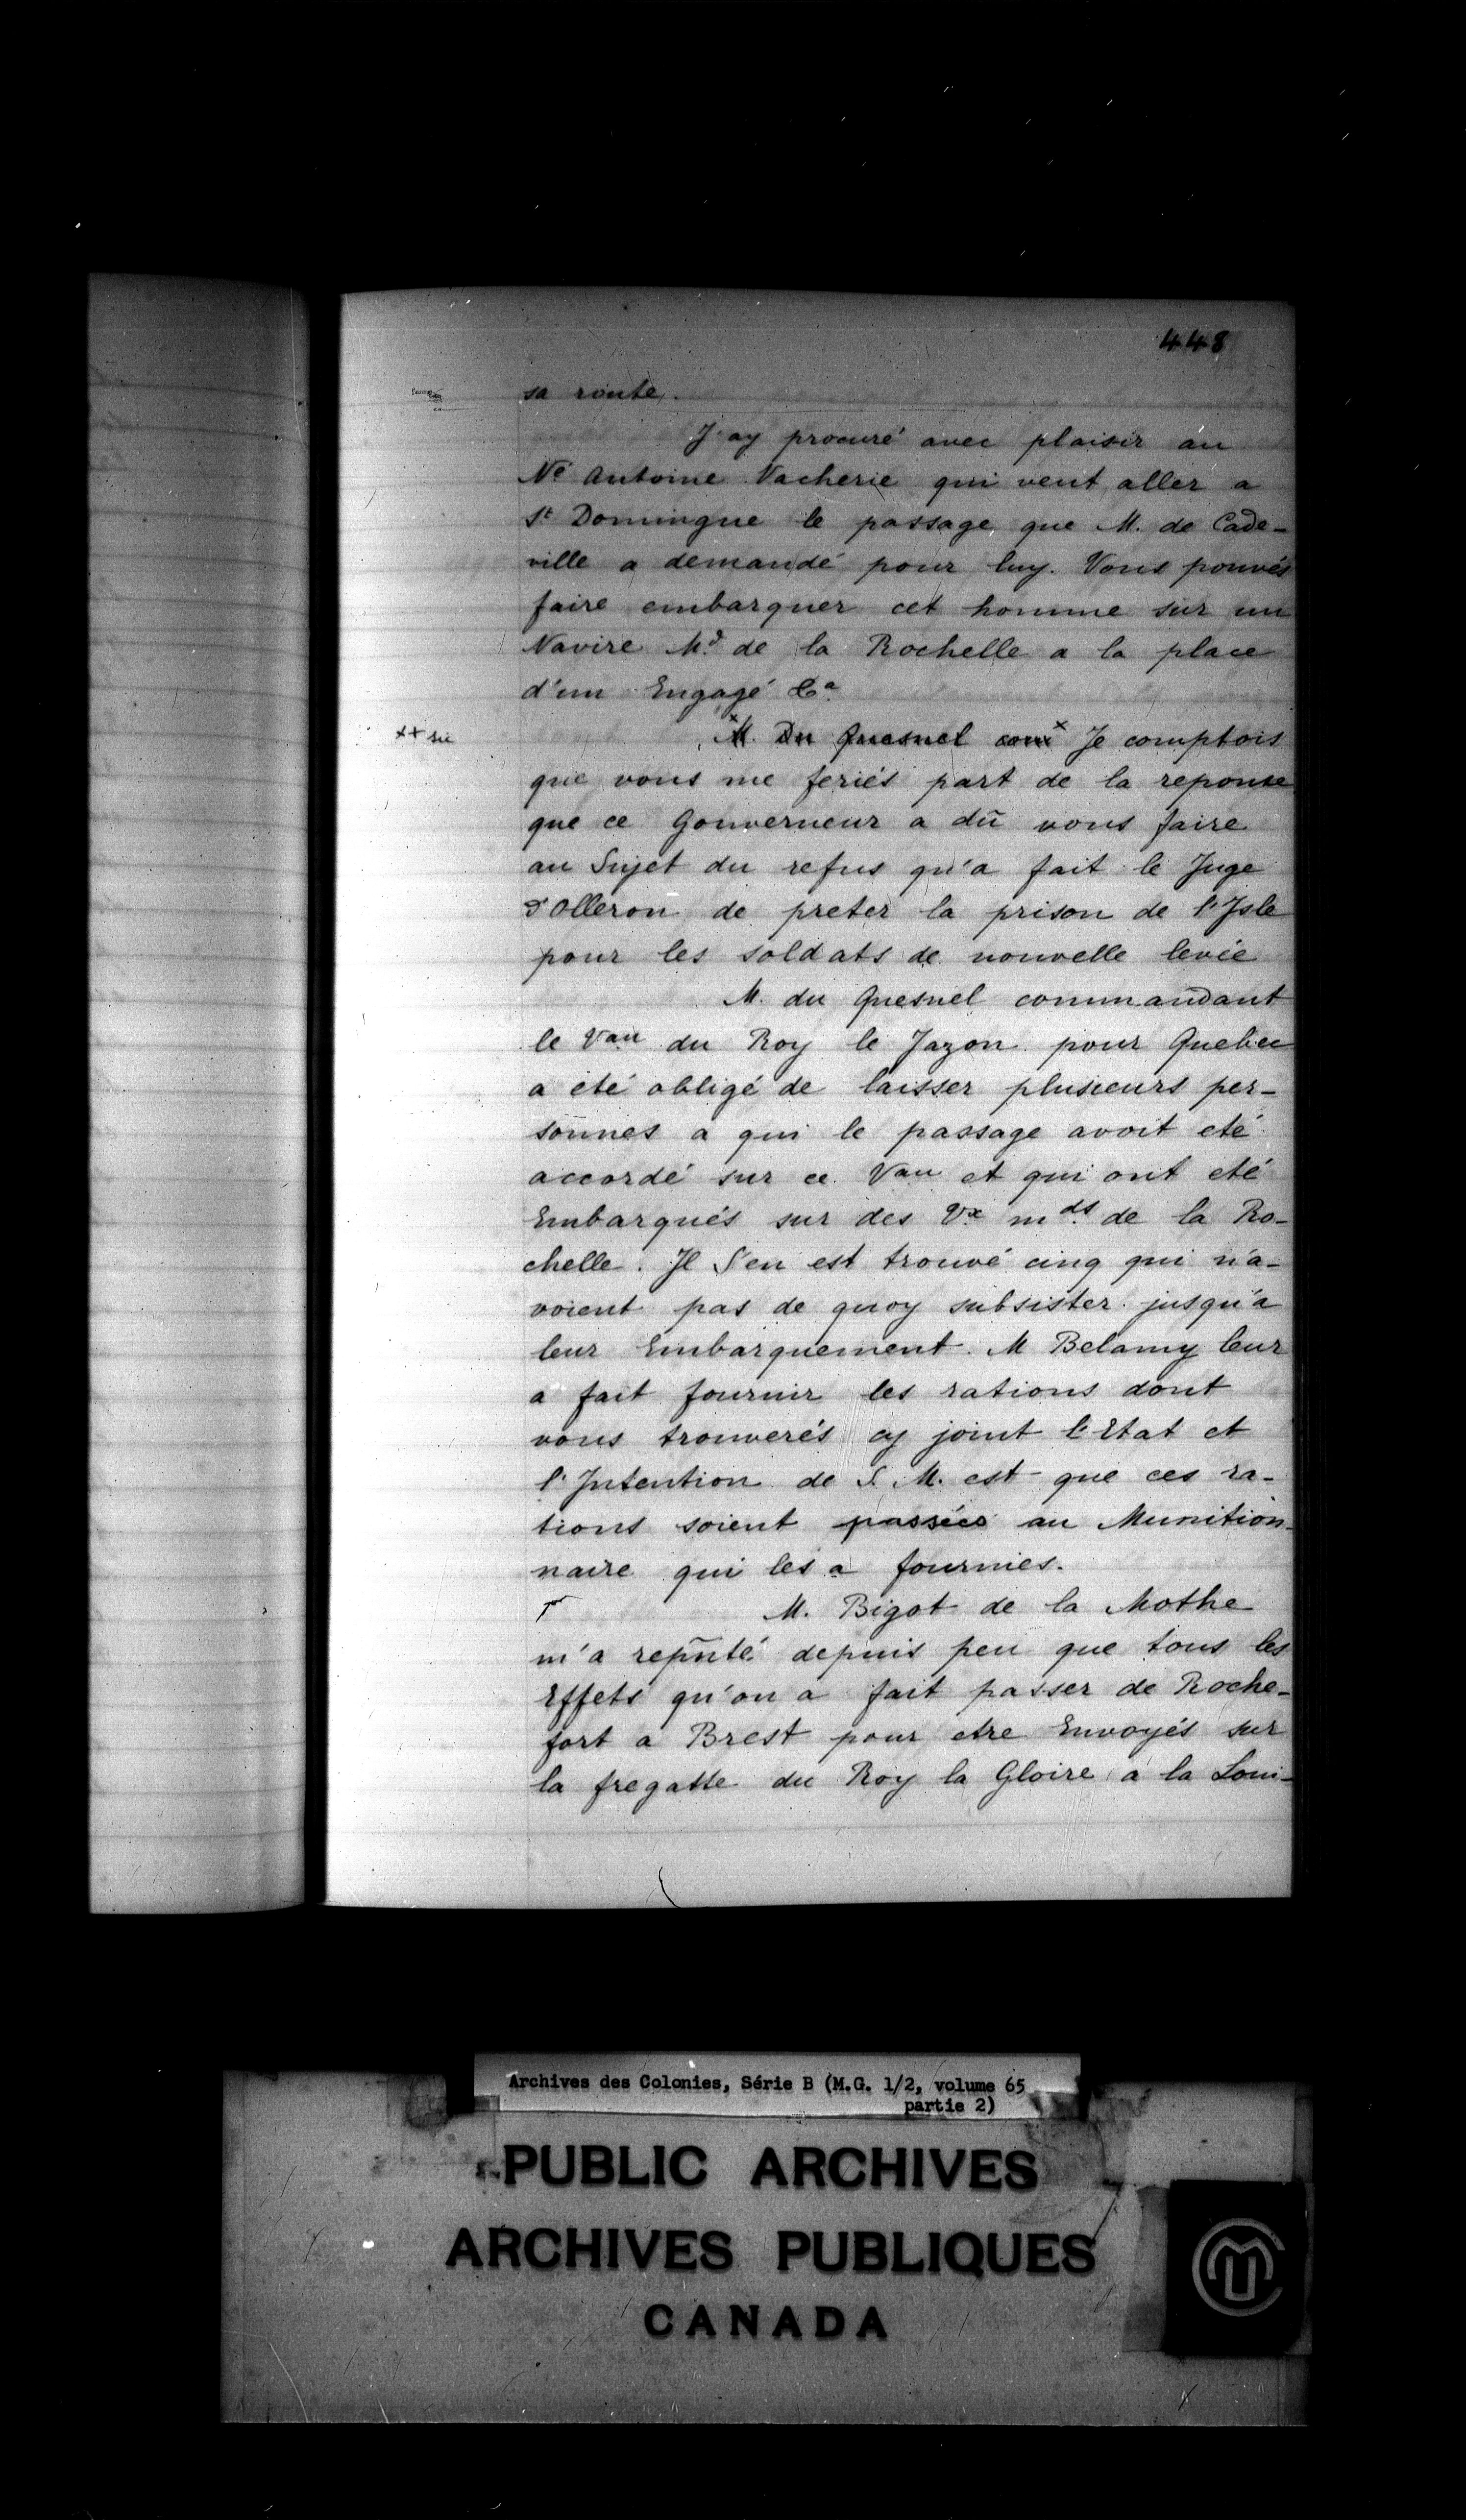 448
sa route.
J'ay procuré avec plaisir au
Né Antoine Vacherie qui veut aller a
St Domingue le passage que M. de Cade-
ville a demandé pour luy. Vous pouvés
faire embarquer cet homme sur un
Navire Md de la Rochelle a la place
d'un Engagé &a
xx sic
x M. Du Quesnel com x Je comptois
que vous me feriés part de la reponse
que ce Gouverneur a dû vous faire
au Sujet du refus qu'a fait le Juge
d'Olleron de preter la prison de l'Isle
pour les soldats de nouvelle levée
M. du Quesnel commandant
le Vau du Roy le Jazon pour Quebec
a été obligé de laisser plusieurs per-
sonnes a qui le passage avoit eté
accordé sur ce Vau et qui ont eté
Embarqués sur des Vx mds de la Ro-
chelle. Il S'en est trouvé cinq qui n'a-
voient pas de quoy subsister jusqu'a
leur Embarquement. M Belamy leur
a fait fournir les rations dont
vous trouverés cy joint l'Etat et
l'Intention de S. M. est que ces ra-
tions soient passées au Munition-
naire qui les a fournies.
M. Bigot de la Mothe
m'a repñté depuis peu que tous les
Effets qu'on a fait passer de Roche-
fort a Brest pour etre Envoyés sur
la fregatte du Roy la Gloire a la Loui-
Archives des Colonies, Série B (M.G. 1/2, volume 65
partie 2)
PUBLIC ARCHIVES
ARCHIVES PUBLIQUES
CANADA